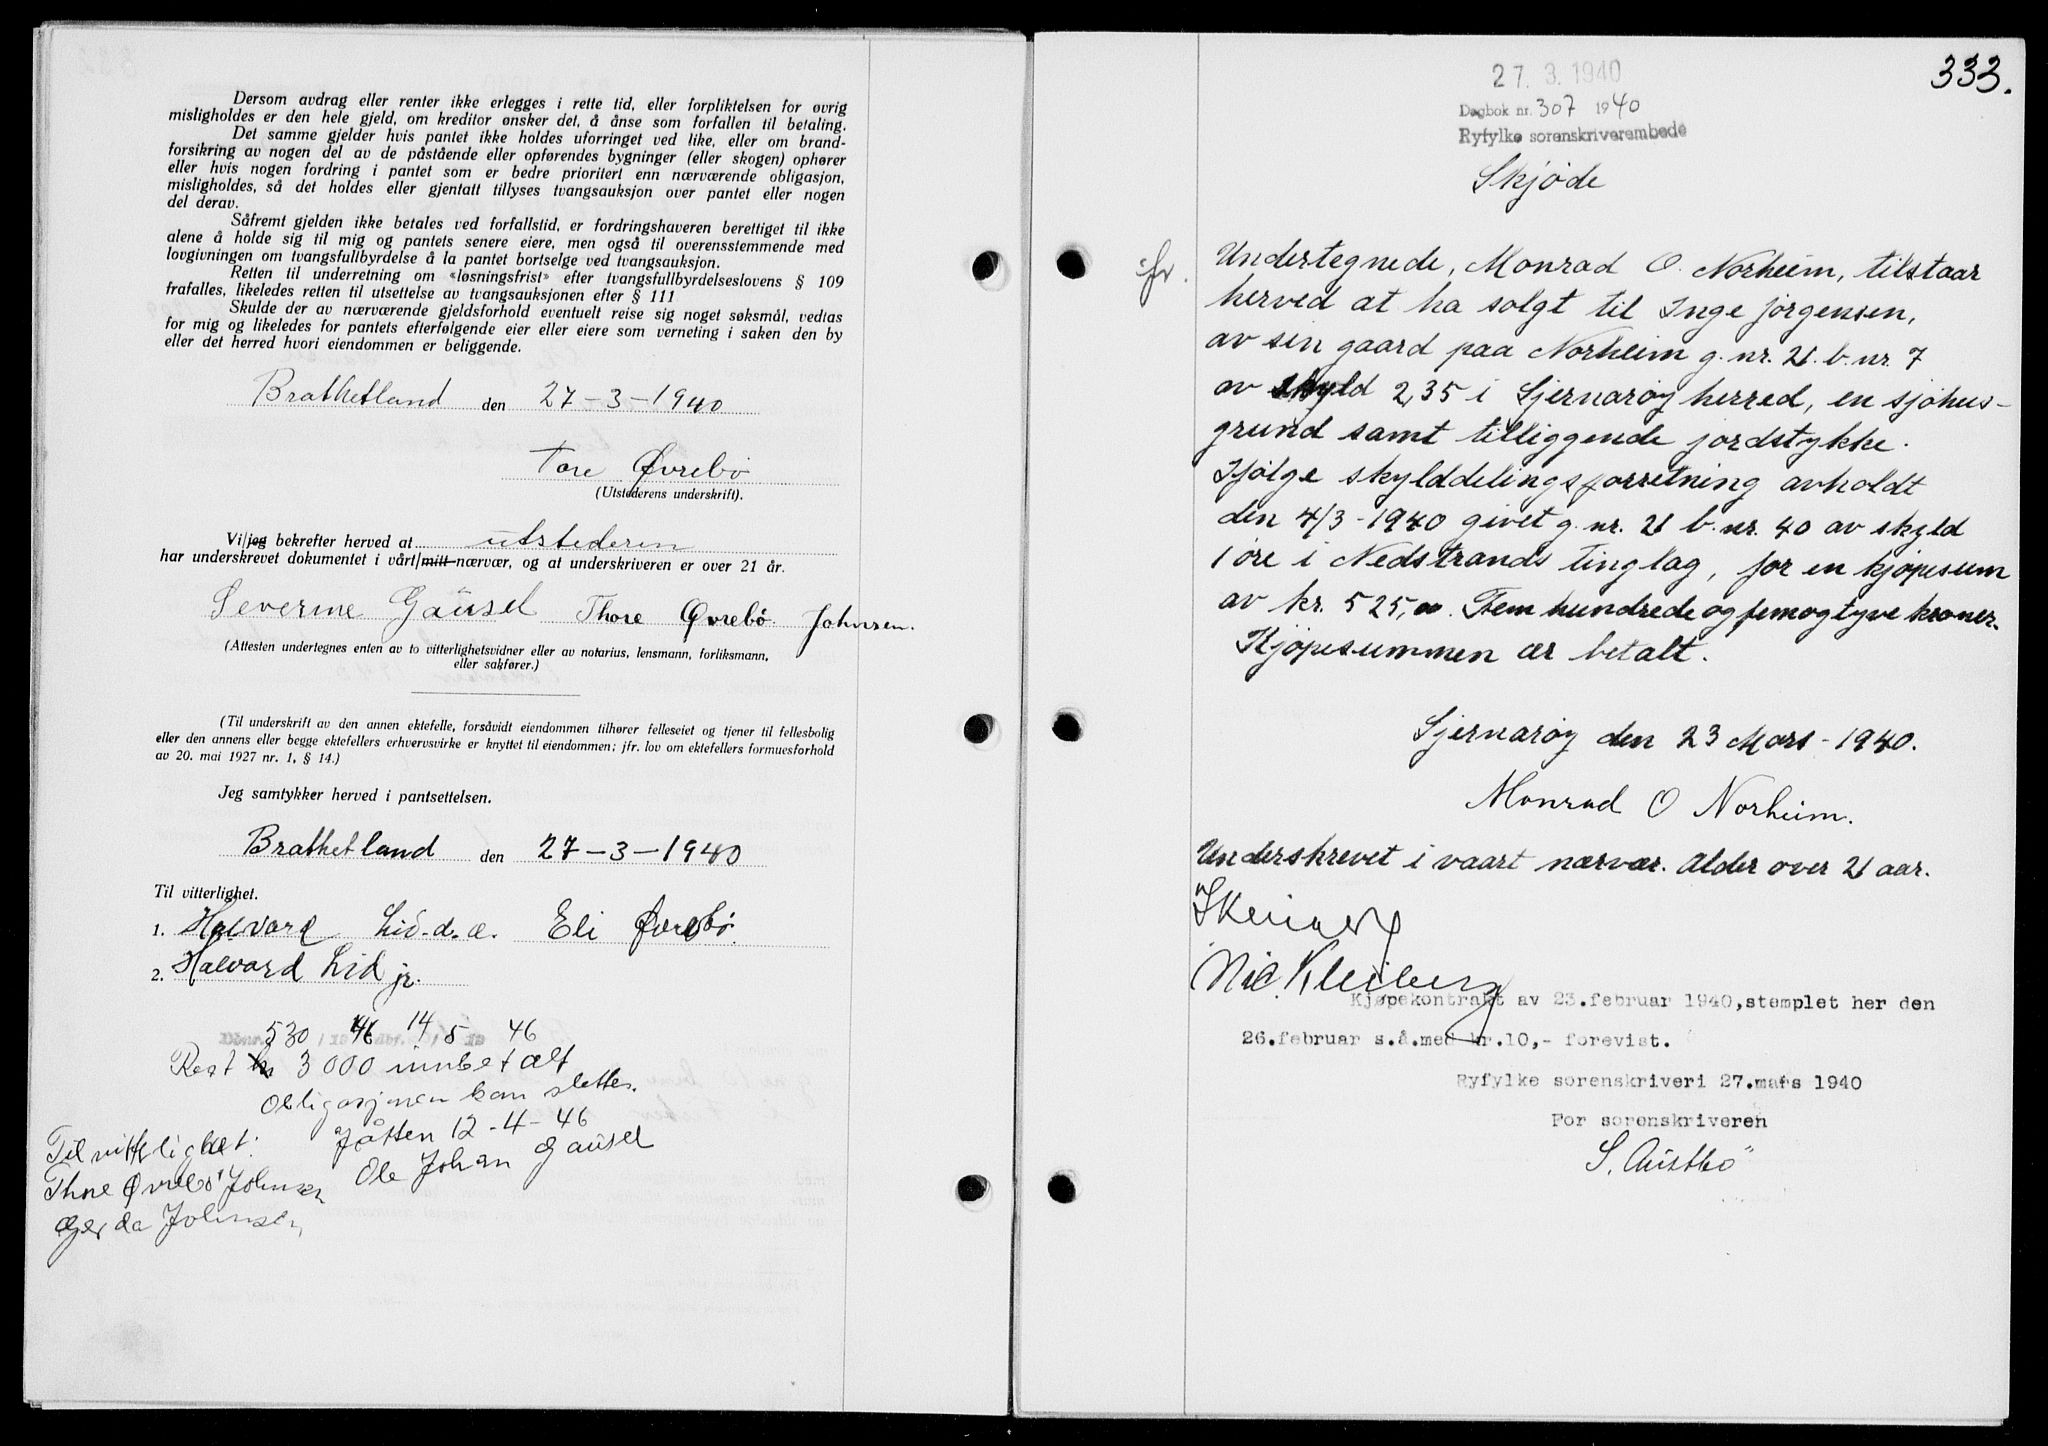 Dersom avdrag eller renter ikke erlegges i rette tid, eller forpliktelsen for øvrig
misligholdes er den hele gjeld, om kreditor ønsker det, å ánse som forfallen til betaling.
Det samme gjelder hvis pantet ikke holdes uforringet ved like, eller om brand-
forsikring av nogen del av de påstående eller opførendes bygninger (eller skogen) ophører
eller hvis nogen fordring i pantet som er bedre prioritert enn nærværende obligasjon,
misligholdes, så det holdes eller gjentatt tillyses tvangsauksjon over pantet eller nogen
del derav.
Såfremt gjelden ikke betales ved forfallstid, er fordringshaveren berettiget til ikke
alene å holde sig til mig og pantets senere eiere, men også til overensstemmende med
lovgivningen om tvangsfullbyrdelse å la pantet bortselge ved tvangsauksjon.
Retten til underretning om «løsningsfrist» efter tvangsfullbyrdelseslovens § 109
frafalles, likeledes retten til utsettelse av tvangsauksjonen efter § 111
Skulde der av nærværende gjeldsforhold eventuelt reise sig noget søksmål, vedtas
for mig og likeledes for pantets efterfølgende eier eller eiere som verneting i saken den by
eller det herred hvori eiendommen er beliggende.
Brathetland den 27-3-1940
Tore Øvrebö
(Utstederens underskrift).
Vi/jeg bekrefter herved at utstederen
har underskrevet dokumentet i vårt/mitt nærvær, og at underskriveren er over 21 år.
Severine Gausel Thore Øvrebö Johnsen.
(Attesten undertegnes enten av to vitterlighetsvidner eller av notarius, lensmann, forliksmann,
eller sakfører.)
(Til underskrift av den annen ektefelle, forsåvidt eiendommen tilhører felleseiet og tjener til fellesbolig
eller den annens eller begge ektefellers erhvervsvirke er knyttet til eiendommen; jfr. lov om ektefellers formuesforhold
av 20. mai 1927 nr. 1, § 14.)
Jeg samtykker herved i pantsettelsen.
Brathetland den 27-3-1940
Til vitterlighet.
1. Halvard Lid d.e. Eli Øvrebö.
2. Halvard Lid jr.
530 46 14 5 46
Rest kr 3000 innbetalt
Obligasjonen kan slettes.
Jåtten 12-4-46
Ole Johan Gausel
Til vitterlighet:
Thore Øvrebö Johnsen
Gerda Johnsen
333.
27. 3. 1940
Dagbok nr. 307 1940
Ryfylke sorenskriverembede
Skjöde
jfr.
Undertegnede, Monrad O. Norheim, tilstaar
herved at ha solgt til Inge Jörgensen,
av sin gaard paa Norheim g. nr. 21. b. nr. 7
av skyld 2,35 i Sjernaröy herred, en sjöhus-
grund samt tilliggende jordstykke.
Ifölge skylddelingsforretning avholdt
den 4/3-1940 givet g. nr. 21 b. nr. 40 av skyld
1 öre i Nedstrands tinglag, for en kjöpesum
av kr. 525,00. Fem hundrede og femogtyve kroner.
Kjöpesummen er betalt.
Sjernaröy den 23 Mars - 1940.
Monrad O Norheim.
Underskrevet i vaart nærvær. Alder over 21 aar.
Nic. Kleiberg
Kjøpekontrakt av 23.februar 1940,stemplet her den
26.februar s.å.med kr.10,- forevist.
Ryfylke sorenskriveri 27.mars 1940
For sorenskriveren
S. Austbö